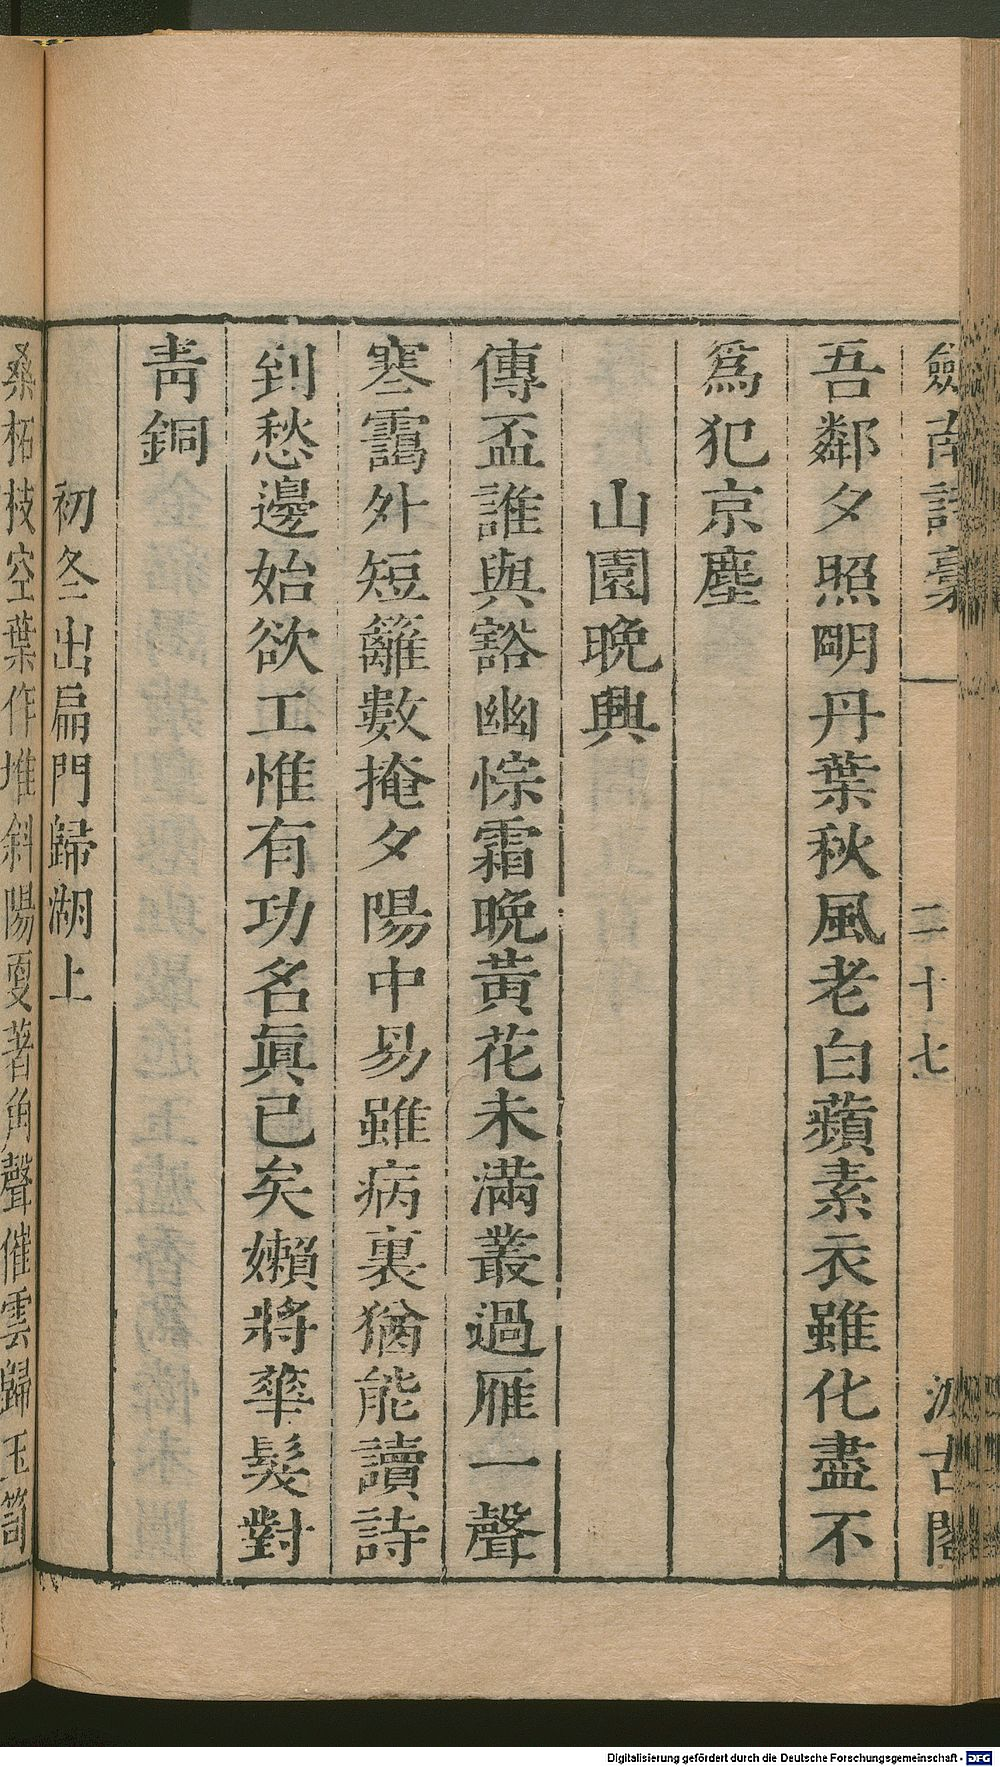 劒南詩稾 二十七 汲古閣
吾鄰夕照明丹葉秋風老白蘋素衣雖化盡不
爲犯京塵
山園晚興
傳盃誰與豁幽悰霜晚黃花未滿叢過雁一聲
寒靄外短籬數掩夕陽中昜雖病裏猶能讀詩
到愁邊始欲工惟有功名眞已矣嬾將華髮對
靑銅
初冬出扁門歸湖上
桑柘枝空葉作堆斜陽戛著角聲催雲歸玉笥
Digitalisierung gefördert durch die Deutsche Forschungsgemeinschaft - DFG